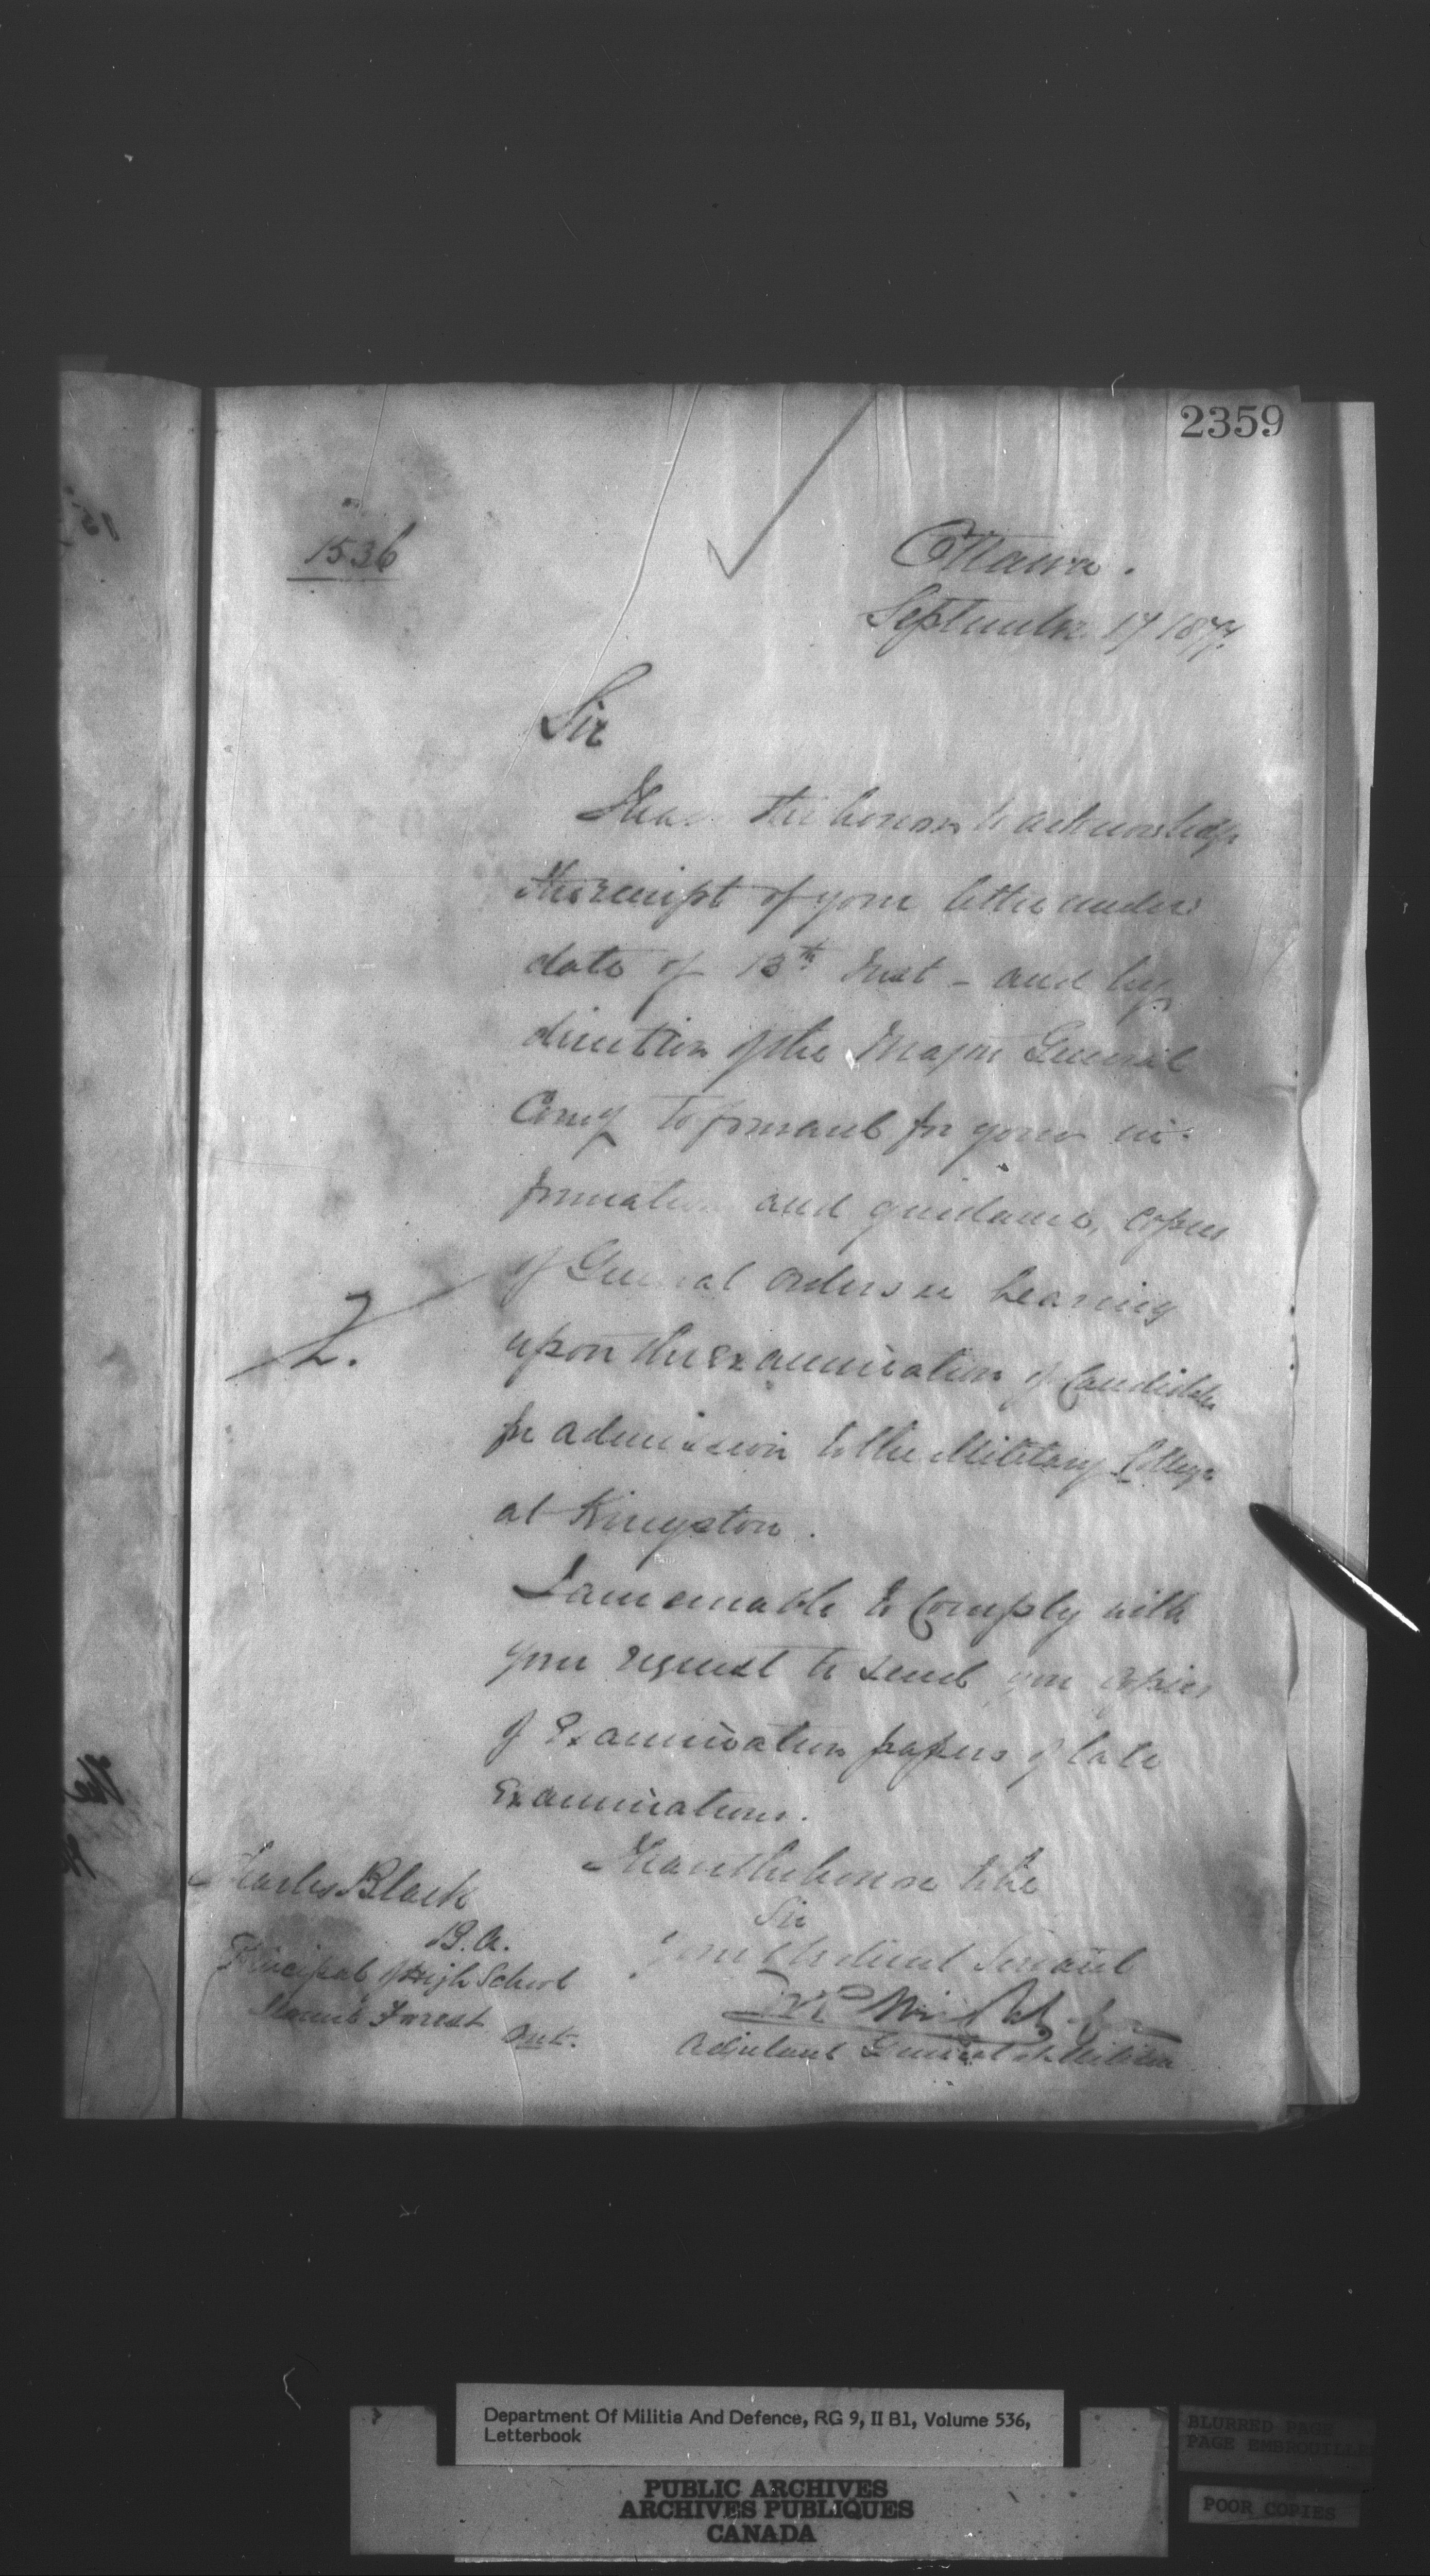 2359
1536
Ottawa.
September 17 1877.
Sir
I have the honor to acknowledge
the receipt of your letter under
date of 13th Inst - and by
direction of the Major General
Comg to forward for your in-
formation and guidance, copies
of General Orders in bearing
2.
upon the examination of Candidates
for admission to the Military College
at Kingston.
I am unable to Comply with
your request to send you copies
of Examination papers of late
Examinations.
I have the honor to be
Sir
Your obedient Servant
Adjutant General of Militia
Charles Black
B.A.
Principal of High School
Mount Forrest Ont.
The
Department Of Militia And Defence, RG 9, II B1, Volume 536,
Letterbook
PUBLIC ARCHIVES
ARCHIVES PUBLIQUES
CANADA
BLURRED PAGE
PAGE EMBROUILLE
POOR COPIES